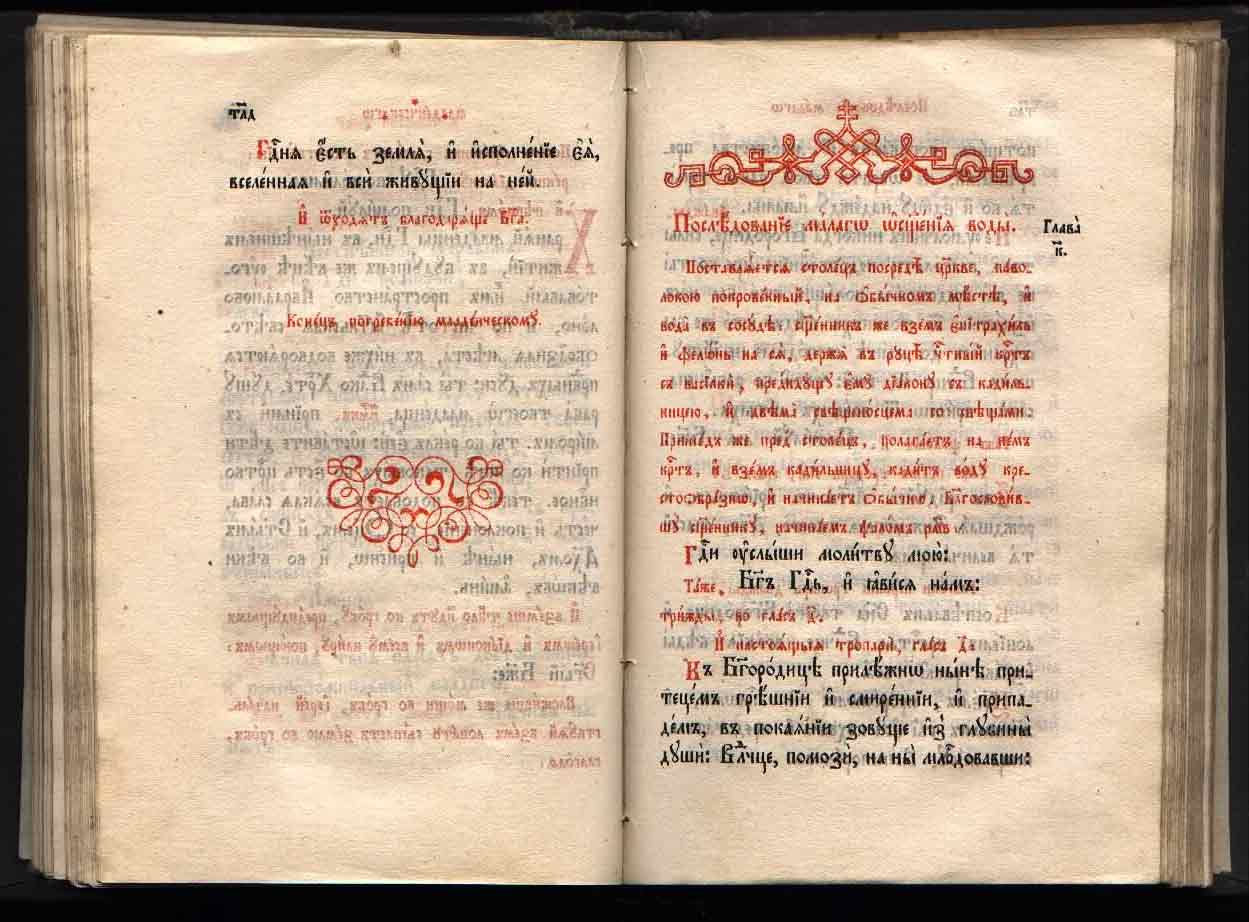 т҃л҃д
Гдⷭ҇ня є҆́сть землѧ̀, и҆ и҆сполне́нїе є҆ѧ̀,
вселе́ннаѧ и҆ всѝ живꙋ́щїи на не́й.
И҆ ѿхо́дѧтъ благодарѧ́ще бг҃а.
Коне́цъ погребе́нїю младе́нческомꙋ.
Послѣ́дованїе ма́лагѡ ѡ҆сщ҃е́нїѧ воды̀.
Глава̀
к҃.
Поставлѧ́етсѧ столе́цъ посредѣ̀ цр҃кве, паво-
локою покрове́нный, на ѻ҆бы́чномъ мѣ́стѣ, и҆
вода̀ въ сосꙋ́дѣ: сщ҃е́нникъ же взе́мъ є҆пїтрахи́ль
и҆ фело́нь на сѧ̀, держѧ̀ въ рꙋцѣ̀ чⷭ҇тны́й крⷭ҇тъ
съ васїлкѝ, предидꙋ́щꙋ є҆мꙋ̀ дїа́конꙋ съ кади́ль-
ницею, и҆ двѣма̀ свѣщено́сцема со свѣща́ми.
Прише́дъ же пред̾ столе́цъ, полага́етъ на не́мъ
крⷭ҇тъ, и҆ взе́мъ кади́льницꙋ, кади́тъ во́дꙋ кре-
стоѻбра́знѡ, и҆ начина́етъ ѻ҆бы́чнѡ, Бл҃гослови́в-
шꙋ сщ҃е́нникꙋ, начина́емъ ѱало́мъ рм҃в
Гдⷭ҇и ᲂу҆слы́ши моли́твꙋ мою̀:
Та́же, Бг҃ъ гдⷭ҇ь, и҆ ꙗ҆ви́сѧ на́мъ:
три́жды, во гла́съ д҃.
И҆ настоѧ́щыѧ тропарѝ, гла́съ д҃.
Къ бг҃оро́дицѣ прилѣ́жнѡ ны́нѣ при-
тецѐмъ грѣ́шнїи и҆ смире́ннїи, и҆ припа-
де́мъ, въ покаѧ́нїи зовꙋ́ще и҆з̾ глꙋбины̀
дꙋшѝ: влⷣчце, помозѝ, на ны̀ млⷭ҇рдовавши: